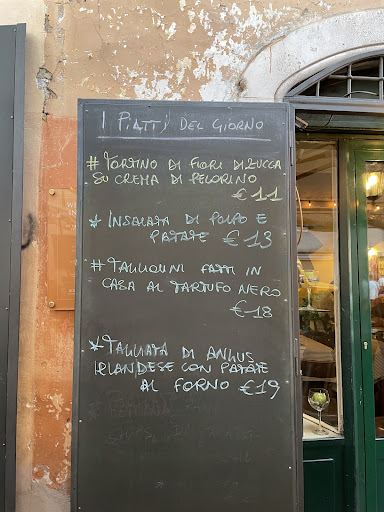 I PIATTI DEL GIORNO
# TORTINO DI FIORI DI ZUCCA
SU CREMA DI PECORINO
€ 11
* INSALATA DI POLPO E
PATATE € 13
# TAGLIOLINI FATTI IN
CASA AL TARTUFO NERO
€ 18
* TAGLIATA DI ANGUS
IRLANDESE CON PATATE
AL FORNO € 19